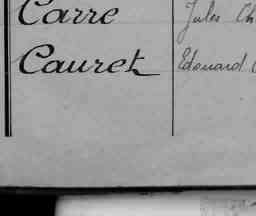 Carre Jules Ch
Cauret Edouard